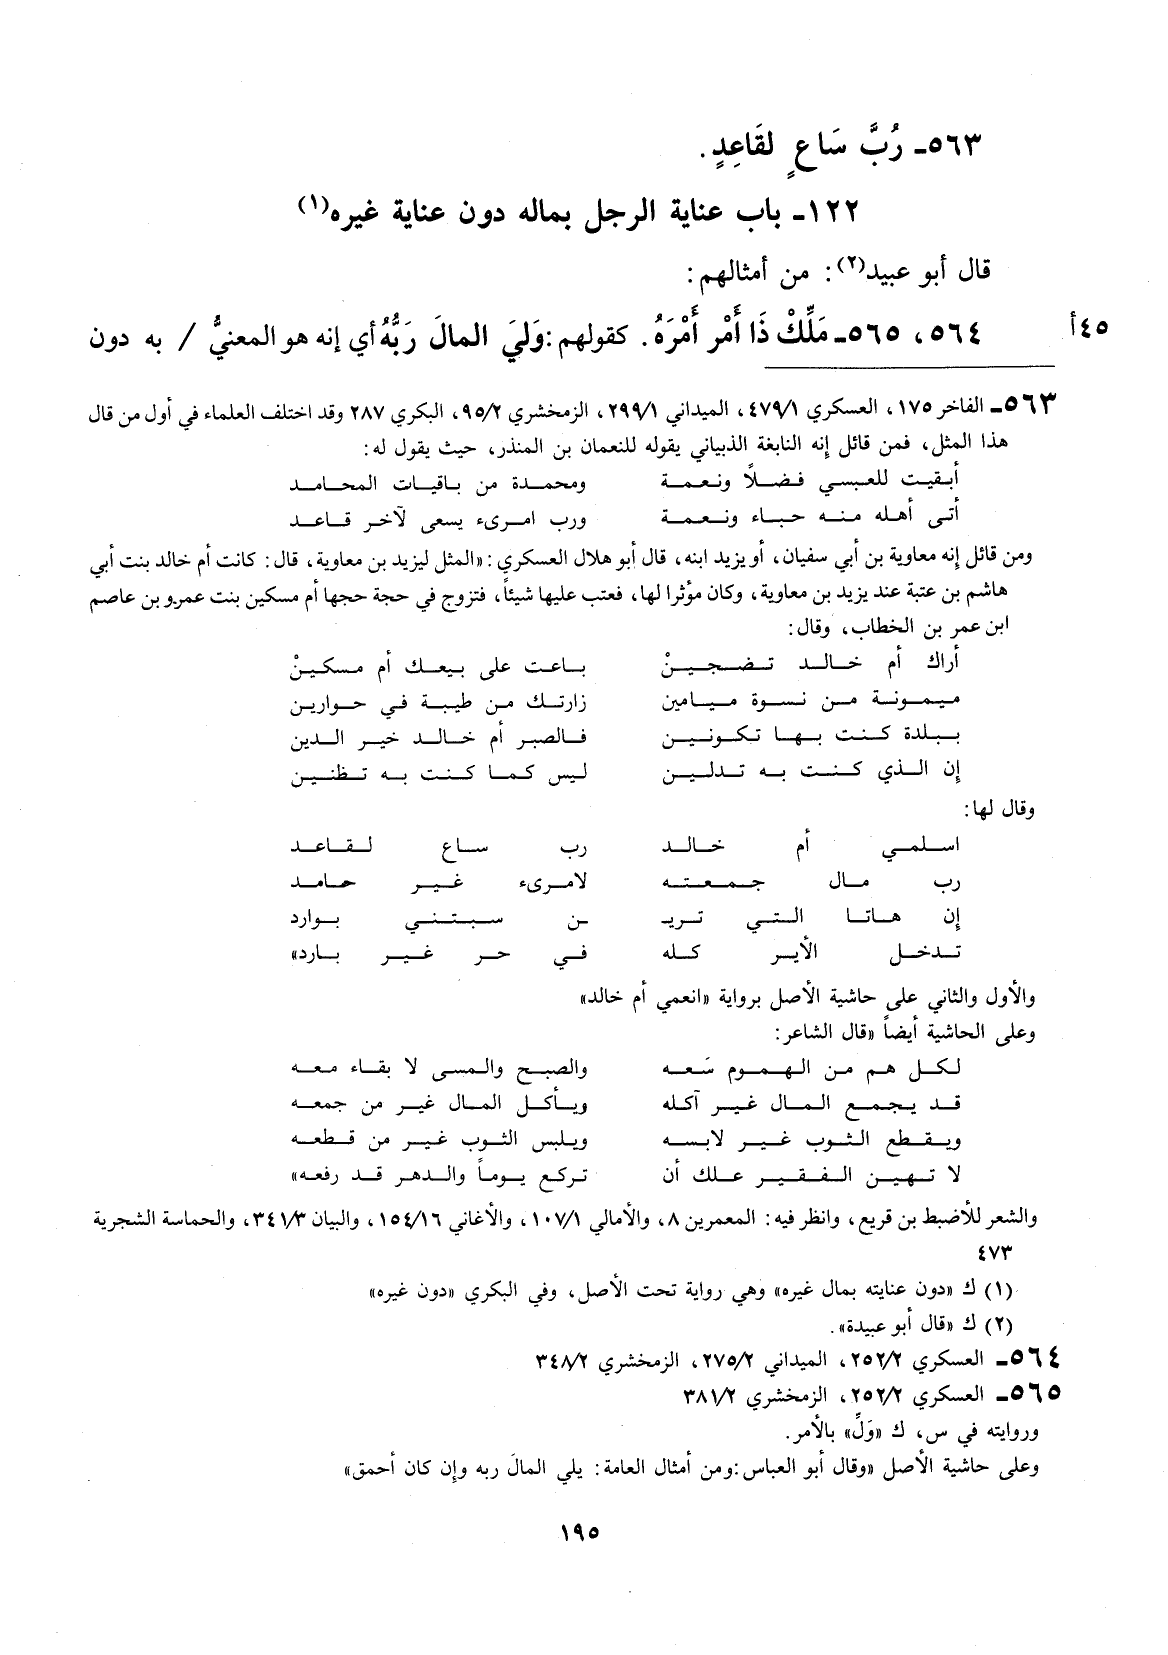 ٥٦٣ـ رُبَّ سَاعٍ لقَاعِدٍ.
١٢٢ـ باب عناية الرجل بماله دون عناية غيره(١)
قال أبو عبيد(٢): من أمثالهم:
٤٥أ
٥٦٤، ٥٦٥ـ مَلِّكْ ذَا أَمْرٍ أَمْرَهُ. كقولهم: وَلَيَ المالَ رَبُّهُ أي إنه هو المعنيُّ / به دون
٥٦٣ـ الفاخر ١٧٥، العسكري ٤٧٩/١، الميداني ٢٩٩/١، الزمخشري ٩٥/٢، البكري ٢٨٧ وقد اختلف العلماء في أول من قال
هذا المثل، فمن قائل إنه النابغة الذبياني يقوله للنعمان بن المنذر، حيث يقول له:
أبقيت للعبسي فضلاً ونعمة ومحمدة من باقيات المحامد
أتى أهله منه حباء ونعمة ورب امرىء يسعى لآخر قاعد
ومن قائل إنه معاوية بن أبي سفيان، أو يزيد ابنه، قال أبو هلال العسكري: «المثل ليزيد بن معاوية، قال: كانت أم خالد بنت أبي
هاشم بن عتبة عند يزيد بن معاوية، وكان مؤثرا لها، فعتب عليها شيئاً، فتزوج في حجة حجها أم مسكين بنت عمرو بن عاصم
ابن عمر بن الخطاب، وقال:
أراك أم خالد تضجينْ باعت على بيعك أم مسكينْ
ميمونة من نسوة ميامين زارتك من طيبة في حوارين
ببلدة كنت بها تكونين فالصبر أم خالد خير الدين
إن الذي كنت به تدلين ليس كما كنت به تظنين
وقال لها:
اسلمي أم خالد رب ساع لقاعد
رب مال جمعته لامرىء غير حامد
إن هاتا التي تريد ـن سبتني بوارد
تدخل الأير كله في حر غير بارد»
والأول والثاني على حاشية الأصل برواية «انعمي أم خالد»
وعلى الحاشية أيضاً «قال الشاعر:
لكل هم من الهموم سَعه والصبح والمسى لا بقاء معه
قد يجمع المال غير آكله ويأكل المال غير من جمعه
ويقطع الثوب غير لابسه ويلبس الثوب غير من قطعه
لا تهين الفقير علك أن تركع يوماً والدهر قد رفعه»
والشعر للأضبط بن قريع، وانظر فيه: المعمرين ٨، والأمالي ١٠٧/١، والأغاني ١٥٤/١٦، والبيان ٣٤١/٣، والحماسة الشجرية
٤٧٣
(١) ك «دون عنايته بمال غيره» وهي رواية تحت الأصل، وفي البكري «دون غيره»
(٢) ك «قال أبو عبيدة».
٥٦٤ـ العسكري ٢٥٢/٢، الميداني ٢٧٥/٢، الزمخشري ٣٤٨/٢
٥٦٥ـ العسكري ٢٥٢/٢، الزمخشري ٣٨١/٢
وروايته في س، ك «وَلِّ» بالأمر.
وعلى حاشية الأصل «وقال أبو العباس: ومن أمثال العامة: يلي المالَ ربه وإن كان أحمق»
١٩٥